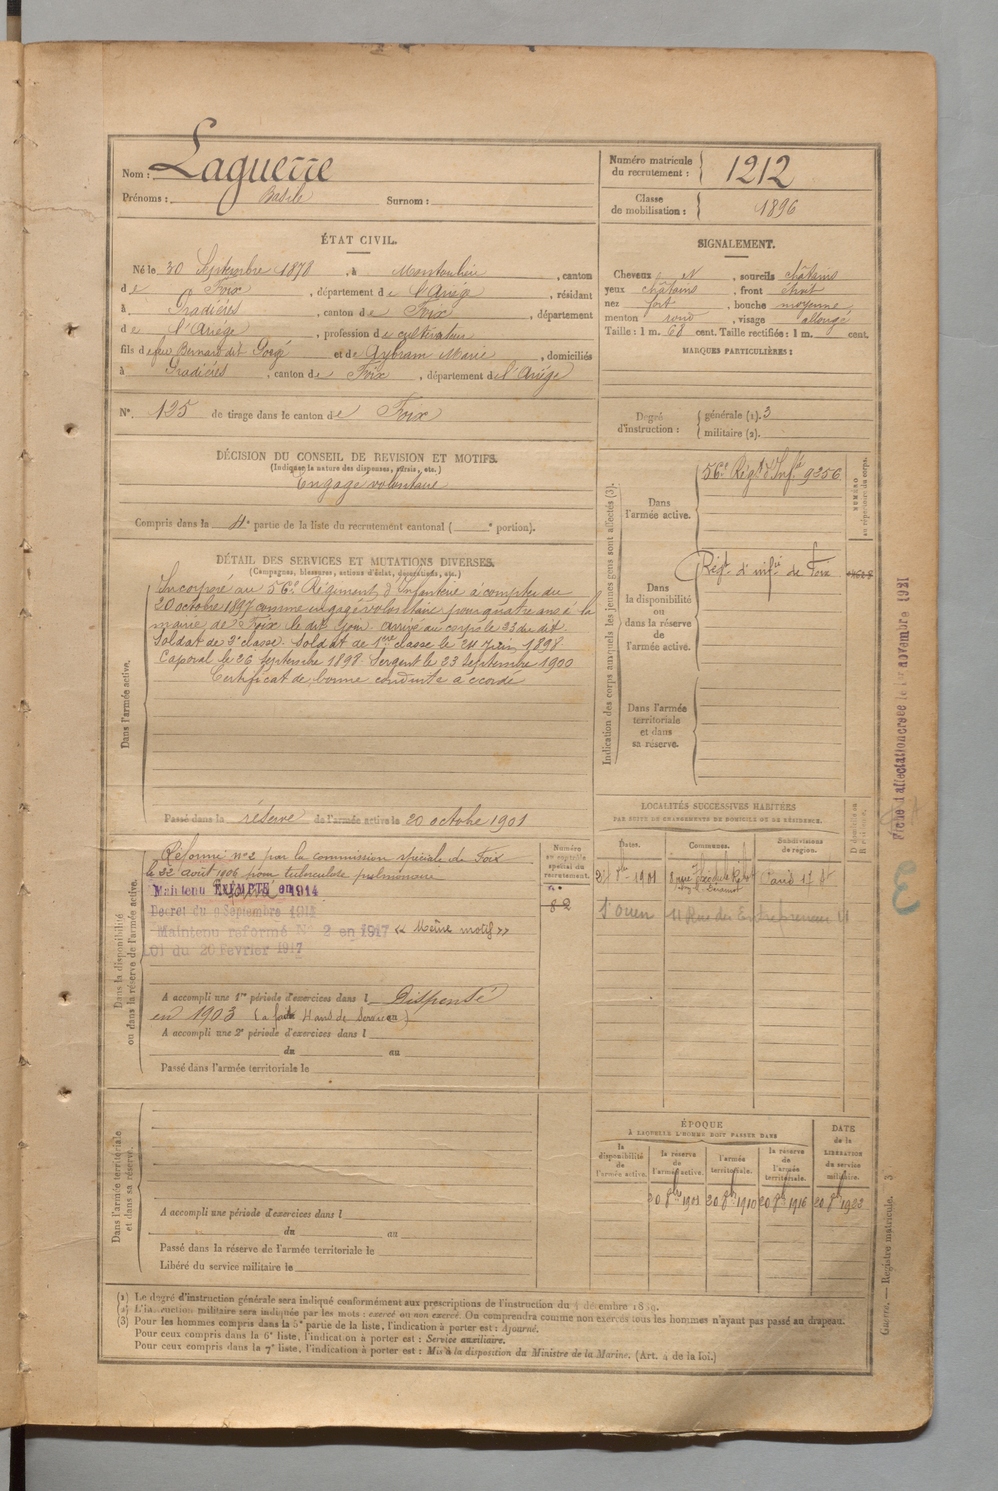 Nom : Laguerre
Prénoms : Basile Surnom :
Numéro matricule du recrutement : 1212
Classe de mobilisation : 1896
ÉTAT CIVIL.
Né le 30 Septembre 1878, à Montoulieu, canton
de Foix, département de l'Ariège, résidant
à Pradières, canton de Foix, département
de l'Ariège, profession de cultivateur
fils de feu Bernard dit Gorgé et de Aybram Marie, domiciliés
à Pradières, canton de Foix, département de l'Ariège
N°. 125 de tirage dans le canton de Foix
SIGNALEMENT.
Cheveux et, sourcils châtains
yeux châtains, front étroit
nez fort, bouche moyenne
menton rond, visage allongé
Taille : 1 m. 68 cent. Taille rectifiée : 1 m. cent.
MARQUES PARTICULIÈRES :
Degré d'instruction : générale (1). 3
militaire (2).
DÉCISION DU CONSEIL DE REVISION ET MOTIFS.
(Indiquer la nature des dispenses, sursis, etc.)
Engagé volontaire
Compris dans la 4e partie de la liste du recrutement cantonal ( e portion).
DÉTAIL DES SERVICES ET MUTATIONS DIVERSES.
(Campagnes, blessures, actions d'éclat, décorations, etc.)
Dans l'armée active.
Incorporé au 56e Régiment d'Infanterie à compter du
20 octobre 1897 comme engagé volontaire pour quatre ans à la
mairie de Foix le dit jour. arrivé au corps le 23 du dit
Soldat de 2e classe. Soldat de 1ere classe le 24 Juin 1898
Caporal le 26 Septembre 1898 Sergent le 23 Septembre 1900
Certificat de bonne conduite accordé
Passé dans la réserve de l'armée active le 20 octobre 1901
Indication des corps auxquels les jeunes gens sont affectés (3).
Dans l'armée active.
56e Régt d'Infie 9256
NUMÉRO au répertoire du corps.
Dans la disponibilité ou dans la réserve de l'armée active.
Régt d'infie de Foix
Dans l'armée territoriale et dans sa réserve.
Fiche d'affectation créée le 1er novembre 1921
3
Dans la disponibilité ou dans la réserve de l'armée active.
Réformé n° 2 par la commission spéciale de Foix
le 22 août 1906 pour tuberculose pulmonaire
Maintenu EXEMPTÉ en 1914
Décret du 9 Septembre 1914
Maintenu réformé N° 2 en 1917 « Même motif »
Loi du 20 Février 1917
Numéro au contrôle spécial du recrutement.
82
A accompli une 1re période d'exercices dans l Dispensé
en 1903 (a fait 4 ans de service) au
A accompli une 2e période d'exercices dans l
du au
Passé dans l'armée territoriale le
LOCALITÉS SUCCESSIVES HABITÉES
PAR SUITE DE CHANGEMENTS DE DOMICILE OU DE RÉSIDENCE.
Dates. Communes. Subdivisions de région.
St Ouen 11 Rue des Entrepreneurs
Dans l'armée territoriale et dans sa réserve.
A accompli une période d'exercices dans l
du au
Passé dans la réserve de l'armée territoriale le
Libéré du service militaire le
ÉPOQUE
À LAQUELLE L'HOMME DOIT PASSER DANS
la disponibilité de l'armée active. la réserve de l'armée active. l'armée territoriale. la réserve de l'armée territoriale.
DATE de la LIBÉRATION du service militaire.
20 8bre 1901 20 8bre 1910 20 8bre 1916 20 8bre 1923
(1) Le degré d'instruction générale sera indiqué conformément aux prescriptions de l'instruction du 4 décembre 1889.
(2) L'instruction militaire sera indiquée par les mots : exercé ou non exercé. On comprendra comme non exercés tous les hommes n'ayant pas passé au drapeau.
(3) Pour les hommes compris dans la 5e partie de la liste, l'indication à porter est : Ajourné.
Pour ceux compris dans la 6e liste, l'indication à porter est : Service auxiliaire.
Pour ceux compris dans la 7e liste, l'indication à porter est : Mis à la disposition du Ministre de la Marine. (Art. 4 de la loi.)
Guerre. — Registre matricule. 3